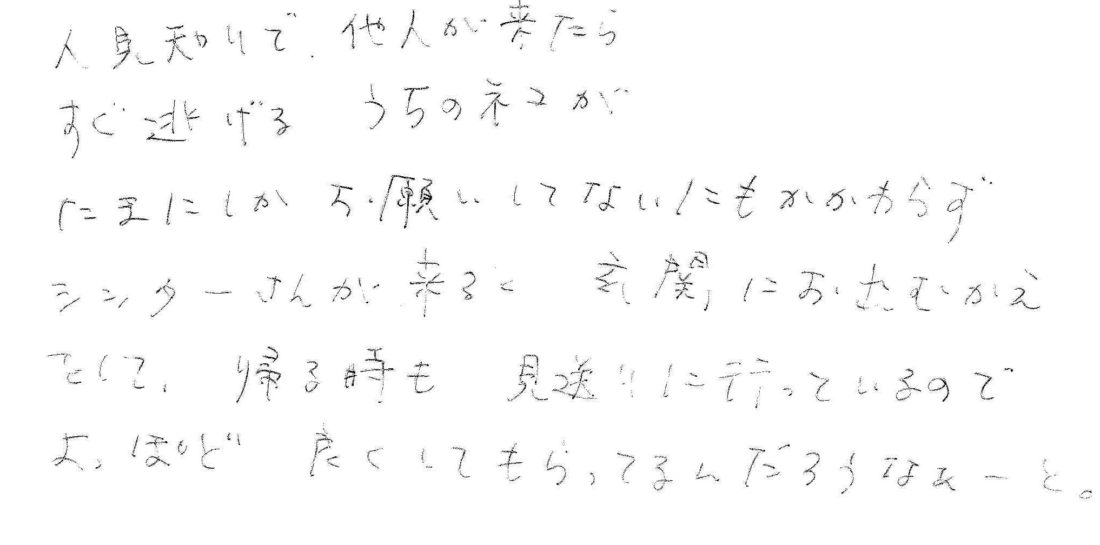 人見知りで、他人が来たら
すぐ逃げる うちのネコが
たまにしか お願いしてないにもかかわらず
シッターさんが来ると 玄関におでむかえ
をして、帰る時も 見送りに行っているので
よっぽど 良くしてもらってるんだろうなぁーと。